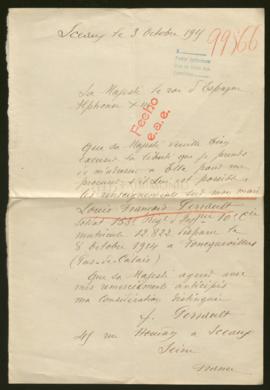 Sceaux le 3 Octobre 191
99566
Sa Majesté le roi d'Espagne
Alphonse XIII
Fecho
Que Sa Majesté veuille bien
excuser la liberté que je prends
de m'adresser à Elle pour me
procurer s'il lui est possible
des renseignements sur mon mari
Louis François Perrault
soldat 153e Rég. 10e Cie
matricule 12.822 disparu le
8 octobre 1914 à Foncquevillers
(Pas-de-Calais)
Que Sa Majesté agrée avec
mes remerciements anticipés
ma considération distinguée
J. Perrault
rue Houdan à Sceaux
Seine
France